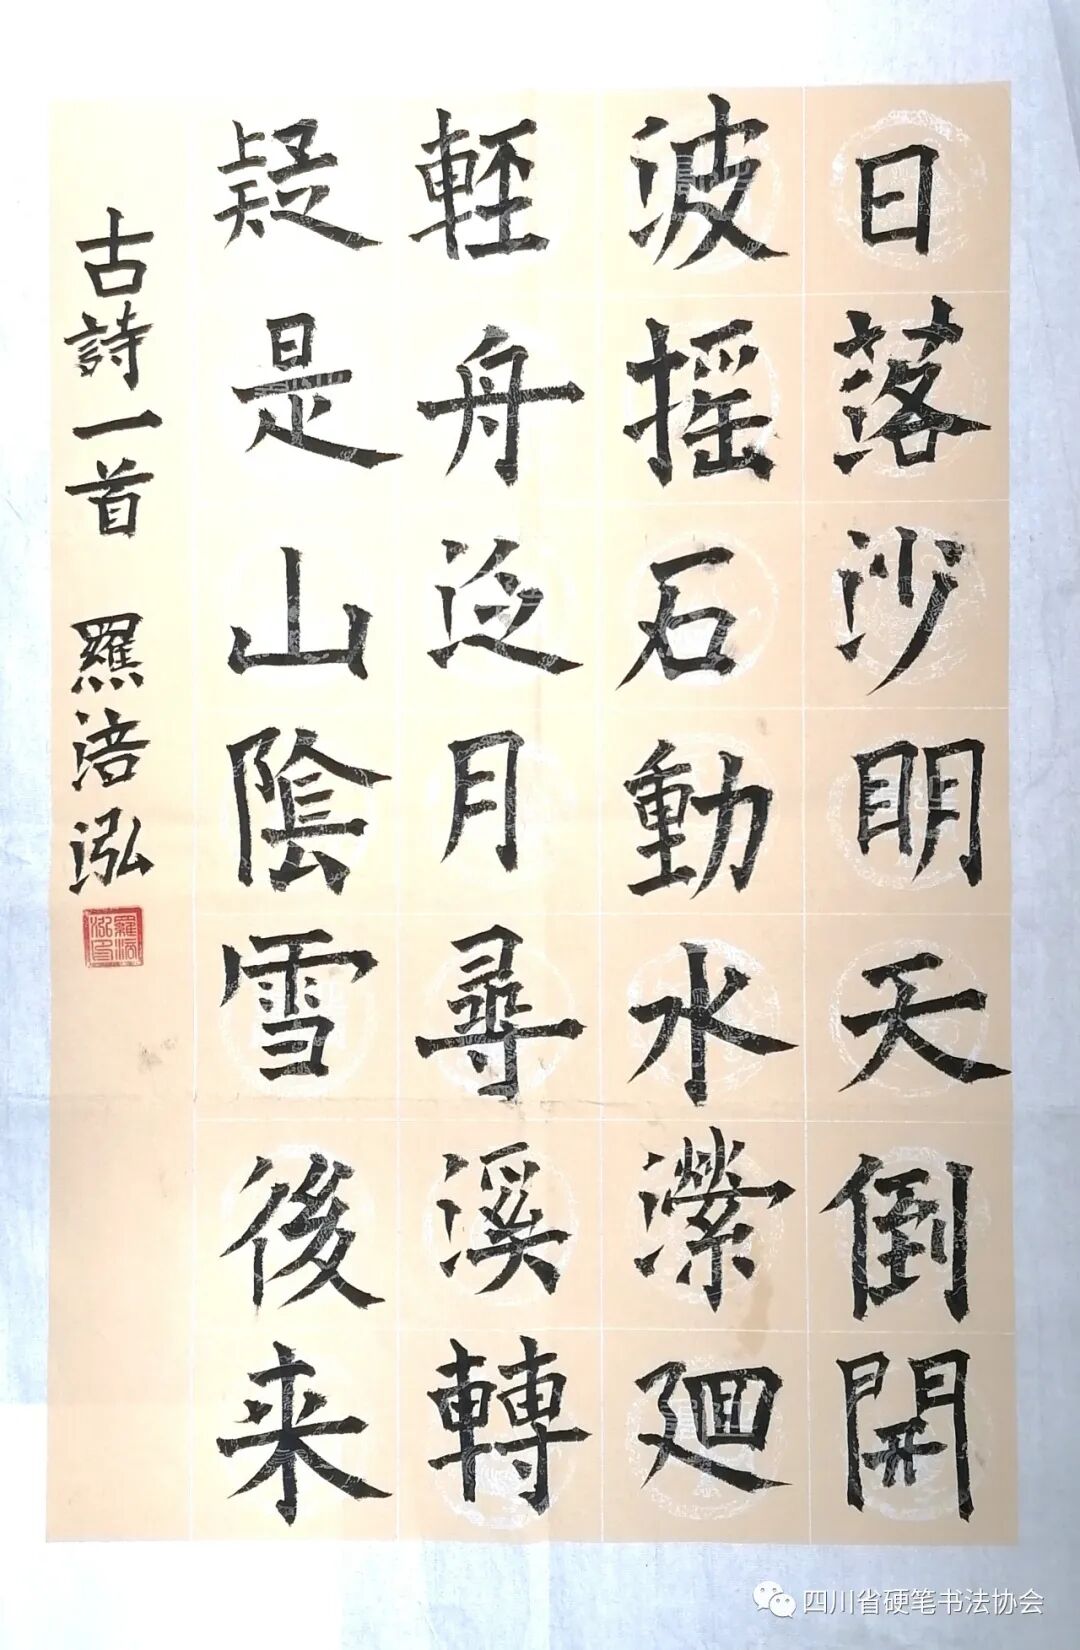 日落沙明天倒開
波摇石動水濴廻
輕舟泛月尋溪轉
疑是山陰雪後来
古詩一首 羅涪泓
四川省硬笔书法协会